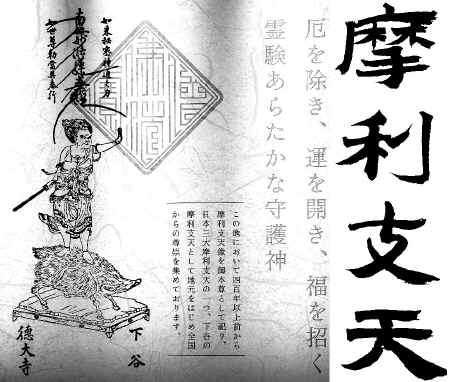 摩利支天
厄を除き、運を開き、福を招く
霊験あらたかな守護神
この地において四百年以上前から
摩利支天像を御本尊として祀り、
日本三大摩利支天の一つ、下谷の
摩利支天として地元をはじめ全国
からの尊崇を集めております。
如来秘密神通之力
南無妙法蓮華経
於世尊勅當具奉行
下谷
徳大寺